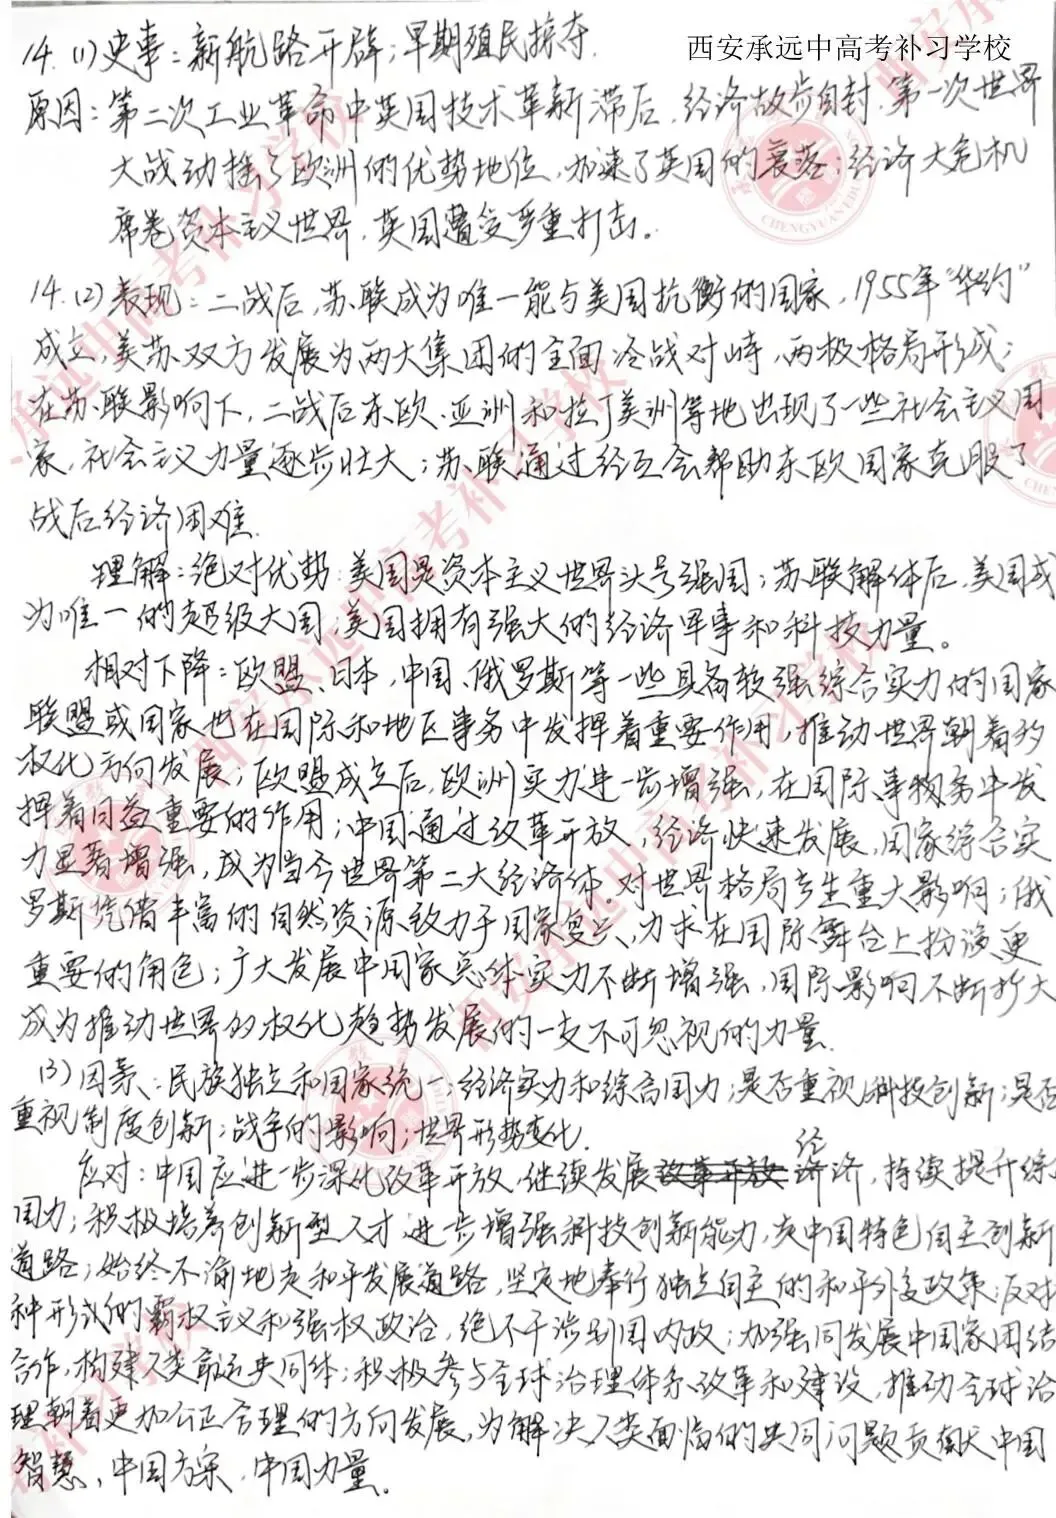 西安承远中高考补习学校
14.(1)史事：新航路开辟；早期殖民掠夺.
原因：第二次工业革命中英国技术革新滞后，经济故步自封，第一次世界
大战动摇了欧洲的优势地位，加速了英国的衰落；经济大危机
席卷资本主义世界，英国遭受严重打击。
14.(2)表现：二战后，苏联成为唯一能与美国抗衡的国家，1955年“华约”
成立，美苏双方发展为两大集团的全面冷战对峙，两极格局形成；
在苏联影响下，二战后东欧、亚洲和拉丁美洲等地出现了一些社会主义国
家，社会主义力量逐步壮大；苏联通过经互会帮助东欧国家克服了
战后经济困难.
理解：绝对优势：美国是资本主义世界头号强国；苏联解体后，美国成
为唯一的超级大国；美国拥有强大的经济军事和科技力量。
相对下降：欧盟、日本，中国、俄罗斯等一些具备较强综合实力的国家
联盟或国家也在国际和地区事务中发挥着重要作用，推动世界朝着多
权化方向发展；欧盟成立后，欧洲实力进一步增强，在国际事物务中发
挥着日益重要的作用；中国通过改革开放，经济快速发展，国家综合实
力显著增强，成为当今世界第二大经济体。对世界格局产生重大影响；俄
罗斯凭借丰富的自然资源致力于国家复兴，力求在国际舞台上扮演更
重要的角色；广大发展中国家总体实力不断增强，国际影响不断扩大
成为推动世界多权化趋势发展的一支不可忽视的力量.
(3)因素：民族独立和国家统一；经济实力和综合国力；是否重视科技创新；是否
重视制度创新；战争的影响；世界形势变化.
应对：中国应进一步深化改革开放，继续发展改革开放经济济，持续提升综
国力；积极培养创新型人才，进一步增强科技创新能力，走中国特色自主创新
道路；始终不渝地走和平发展道路，坚定地奉行独立自主的和平外交政策；反对
种形式的霸权主义和强权政治，绝不干涉别国内政；加强同发展中国家团结
合作，构建人类命运共同体；积极参与全球治理体系改革和建设，推动全球治
理朝着更加公正合理的方向发展，为解决人类面临的共同问题贡献中国
智慧，中国方案，中国力量。